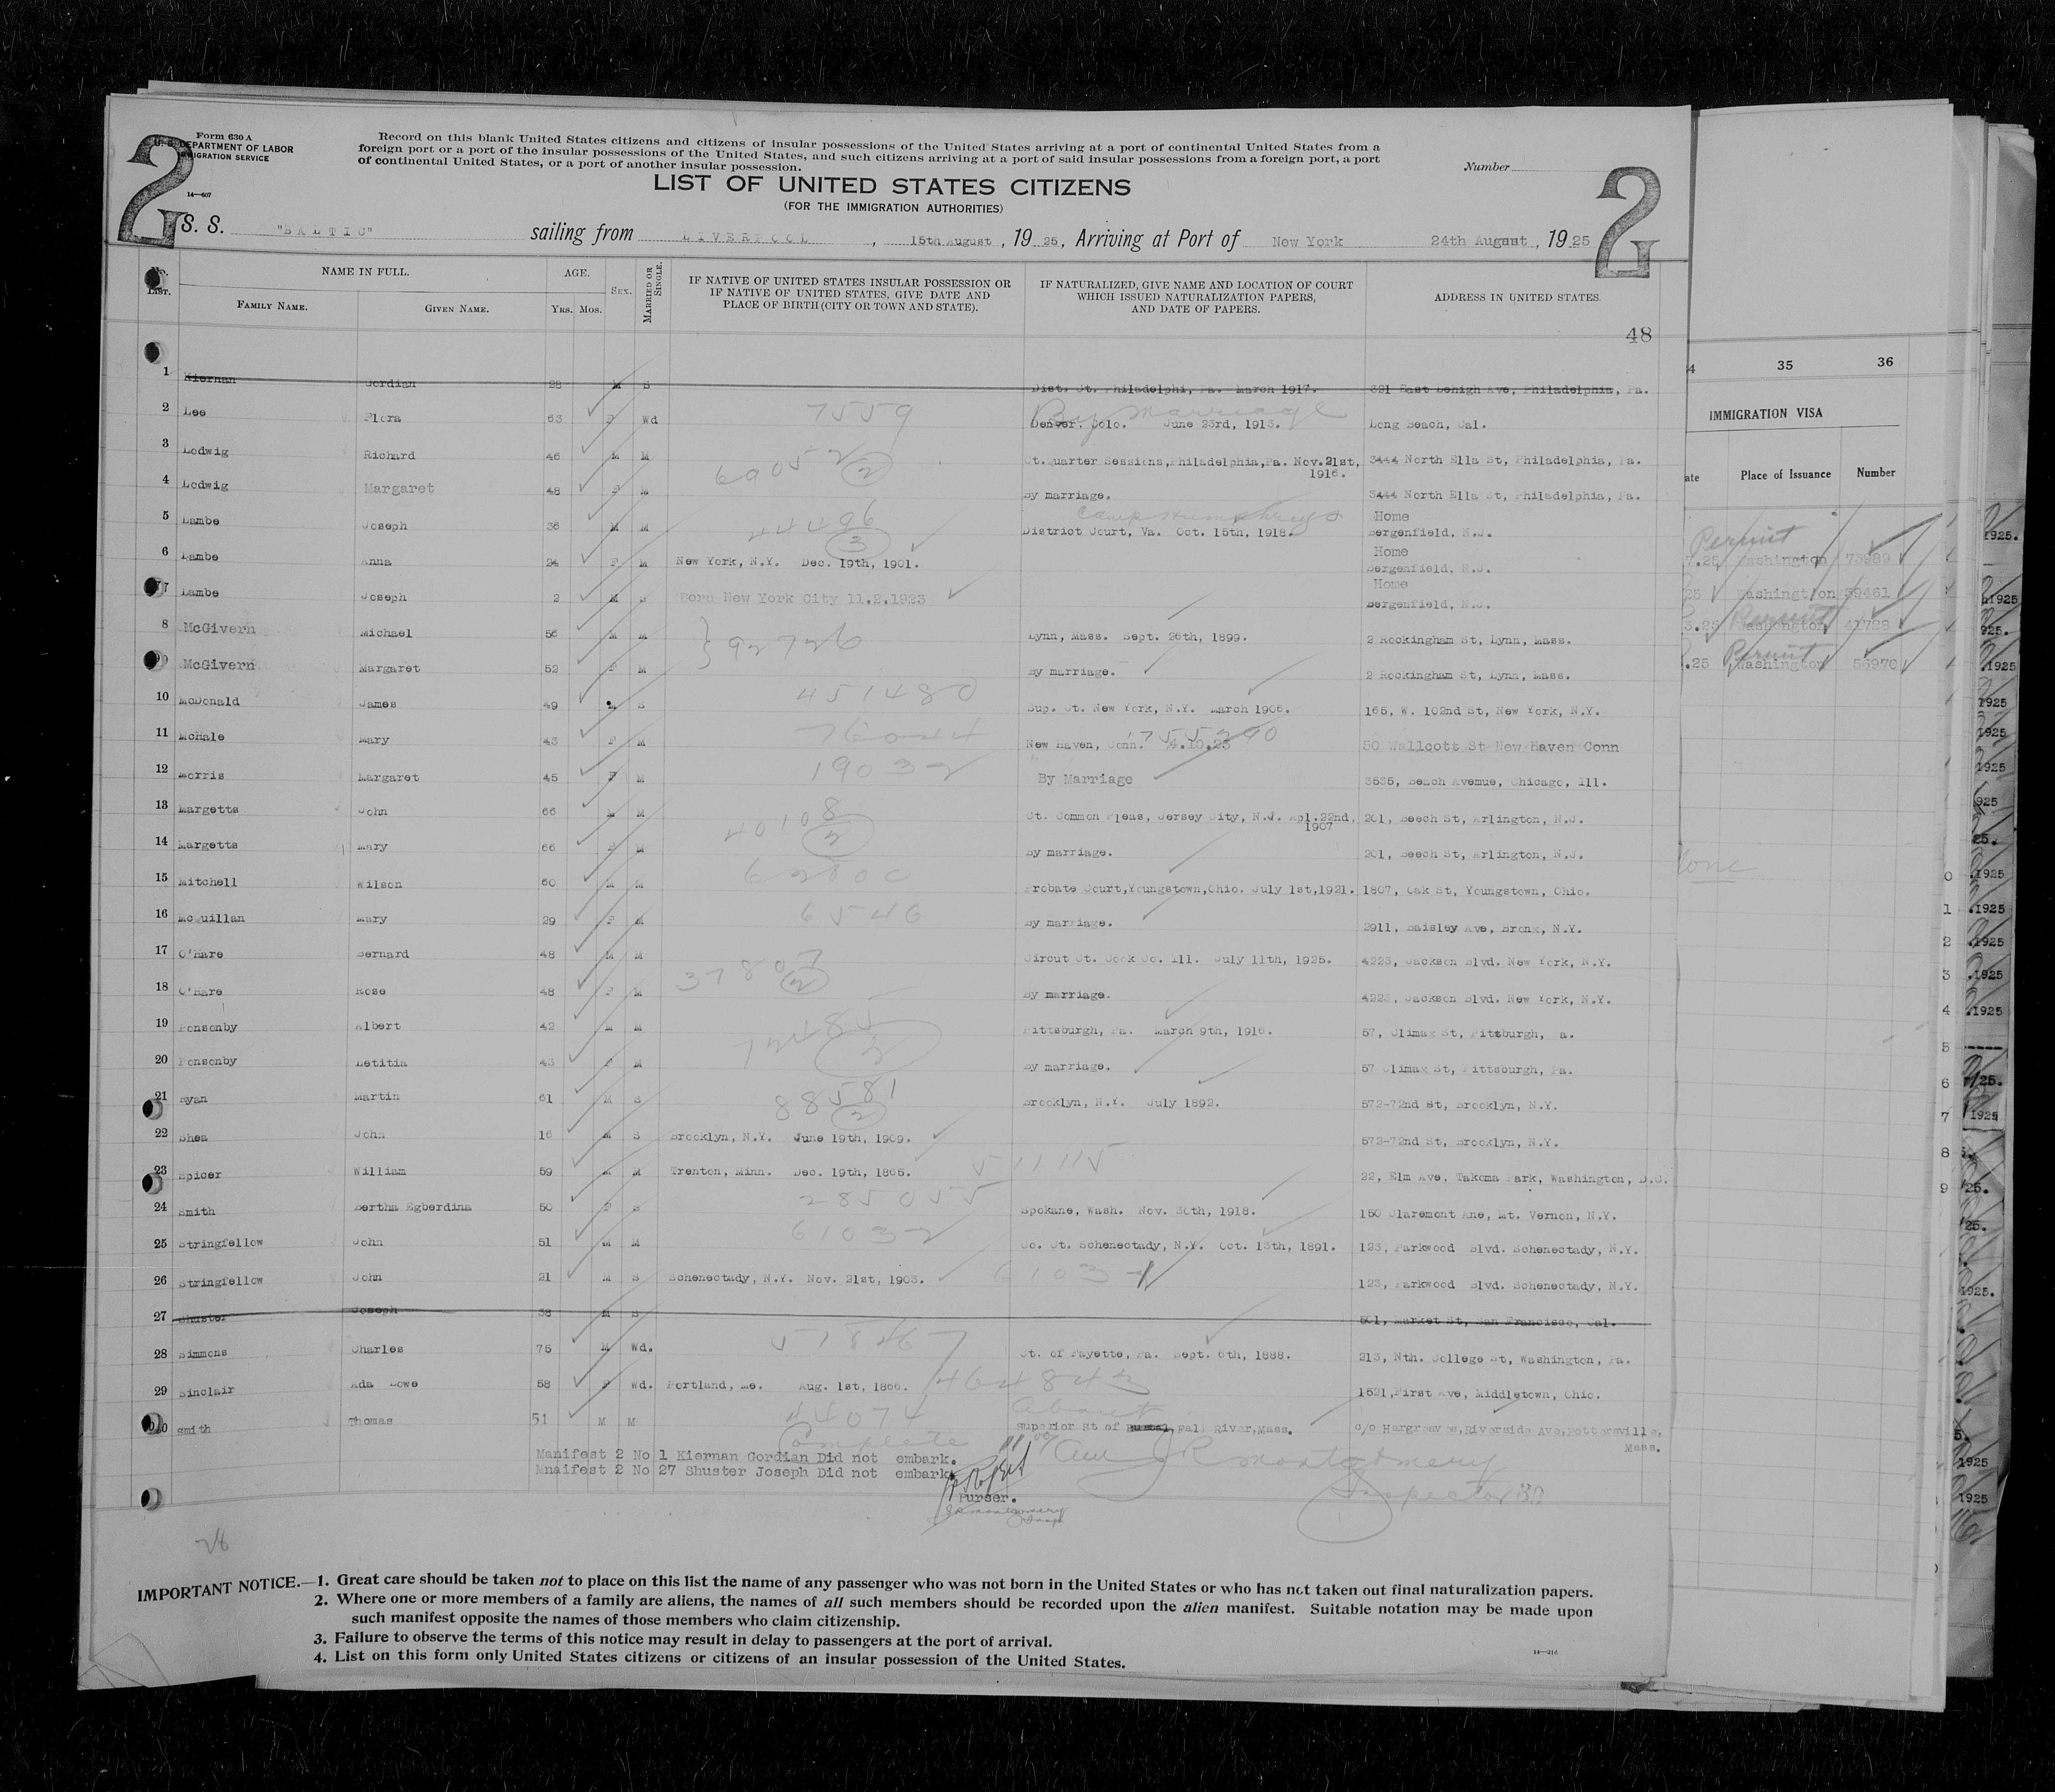 2
Form 630 A
U. S. DEPARTMENT OF LABOR
IMMIGRATION SERVICE
14—607
Record on this blank United States citizens and citizens of insular possessions of the United States arriving at a port of continental United States from a
foreign port or a port of the insular possessions of the United States, and such citizens arriving at a port of said insular possessions from a foreign port, a port
of continental United States, or a port of another insular possession.
Number
2
LIST OF UNITED STATES CITIZENS
(FOR THE IMMIGRATION AUTHORITIES)
S. S. "BALTIC" sailing from LIVERPOOL, 15th August, 1925, Arriving at Port of New York 24th August, 1925
No. LIST. NAME IN FULL. AGE. SEX. MARRIED OR SINGLE. IF NATIVE OF UNITED STATES INSULAR POSSESSION OR IF NATIVE OF UNITED STATES, GIVE DATE AND PLACE OF BIRTH (CITY OR TOWN AND STATE). IF NATURALIZED, GIVE NAME AND LOCATION OF COURT WHICH ISSUED NATURALIZATION PAPERS, AND DATE OF PAPERS. ADDRESS IN UNITED STATES.
FAMILY NAME. GIVEN NAME. YRS. MOS.
48
1 Kiernan Gordian 28 M S Dist. Ct. Philadelphi, Pa. March 1917. 391 East Lehigh Ave, Philadelphia, Pa.
2 Lee Flora 63 F Wd 7559 By Marriage Denver, Colo. June 23rd, 1913. Long Beach, Cal.
3 Lodwig Richard 46 M M 69052 (2) Ct.Quarter Sessions,Philadelphia,Pa. Nov.21st, 1916. 3444 North Ella St, Philadelphia, Pa.
4 Lodwig Margaret 48 F M By marriage. 3444 North Ella St, Philadelphia, Pa.
5 Lambe Joseph 36 M M 44496 (3) Camp Humphreys District Court, Va. Oct. 15th, 1918. Home Bergenfield, N.J.
6 Lambe Anna 24 F M New York, N.Y. Dec. 19th, 1901. Home Bergenfield, N.J.
7 Lambe Joseph 2 M S Born New York City 11.2.1923 Home Bergenfield, N.J.
8 McGivern Michael 56 M M 92726 Lynn, Mass. Sept. 26th, 1899. 2 Rockingham St, Lynn, Mass.
9 McGivern Margaret 52 F M By marriage. 2 Rockingham St, Lynn, Mass.
10 McDonald James 49 M S 451480 Sup. Ct. New York, N.Y. March 1906. 165, W. 102nd St, New York, N.Y.
11 McHale Mary 43 F M 76044 New Haven, Conn. 4.10.23 755290 50 Wallcott St New Haven Conn
12 Morris Margaret 45 F M 19032 By Marriage 3535, Beach Avemue, Chicago, Ill.
13 Margetts John 66 M M 40108 (2) Ct. Common Pleas, Jersey City, N.J. Apl.22nd, 1907 201, Beech St, Arlington, N.J.
14 Margetts Mary 66 F M By marriage. 201, Beech St, Arlington, N.J.
15 Mitchell Wilson 60 M M 62800 Probate Court,Youngstown,Ohio. July 1st,1921. 1807, Oak St, Youngstown, Ohio.
16 McQuillan Mary 29 F M 6546 By marriage. 2911, Baisley Ave, Bronx, N.Y.
17 O'Hare Bernard 48 M M 37807 (2) Circut Ct. Cook Co. Ill. July 11th, 1925. 4223, Jackson Blvd. New York, N.Y.
18 O'Hare Rose 48 F M By marriage. 4223, Jackson Blvd. New York, N.Y.
19 Ponsonby Albert 42 M M 72485 (2) Pittsburgh, Pa. March 9th, 1916. 57, Climax St, Pittsburgh, Pa.
20 Ponsonby Letitia 43 F M By marriage. 57 Climax St, Pittsburgh, Pa.
21 Ryan Martin 61 M S 88581 (2) Brooklyn, N.Y. July 1892. 572-72nd St, Brooklyn, N.Y.
22 Shea John 16 M S Brooklyn, N.Y. June 19th, 1909. 572-72nd St, Brooklyn, N.Y.
23 Spicer William 59 M M Trenton, Minn. Dec. 19th, 1865. 511115 22, Elm Ave, Takoma Park, Washington, D.C.
24 Smith Bertha Egberdina 50 F S 285055 Spokane, Wash. Nov. 30th, 1918. 150 Claremont Ane, Mt. Vernon, N.Y.
25 Stringfellow John 51 M M 61032 Co. Ct. Schenectady, N.Y. Oct. 13th, 1891. 123, Parkwood Blvd. Schenectady, N.Y.
26 Stringfellow John 21 M S Schenectady, N.Y. Nov. 21st, 1903. 6103 123, Parkwood Blvd. Schenectady, N.Y.
27 Shuster Joseph 38 M S 501, Market St, San Francisco, Cal.
28 Simmons Charles 75 M Wd. 57867 Ct. of Fayette, Pa. Sept. 6th, 1888. 213, Nth. College St, Washington, Pa.
29 Sinclair Ada Lowe 58 F Wd. Portland, Me. Aug. 1st, 1866. 464842 1521,First Ave, Middletown, Ohio.
30 Smith Thomas 51 M M 44074 About Superior Rt of Fall River,Mass. c/o Hargreaves,Riverside Ave,Pottersville, Mass.
Complete
Manifest 2 No 1 Kiernan Gordian Did not embark.
Mnaifest 2 No 27 Shuster Joseph Did not embark.
Purser.
J R Montgomery
Inspector 30
JR Montgomery
Insp
26
IMPORTANT NOTICE.—1. Great care should be taken not to place on this list the name of any passenger who was not born in the United States or who has not taken out final naturalization papers.
2. Where one or more members of a family are aliens, the names of all such members should be recorded upon the alien manifest. Suitable notation may be made upon
such manifest opposite the names of those members who claim citizenship.
3. Failure to observe the terms of this notice may result in delay to passengers at the port of arrival.
4. List on this form only United States citizens or citizens of an insular possession of the United States.
35 36
IMMIGRATION VISA
Place of Issuance Number
Permit
Washington 73989
Washington 39461
Permit
Washington 41728
Permit
Washington 56970